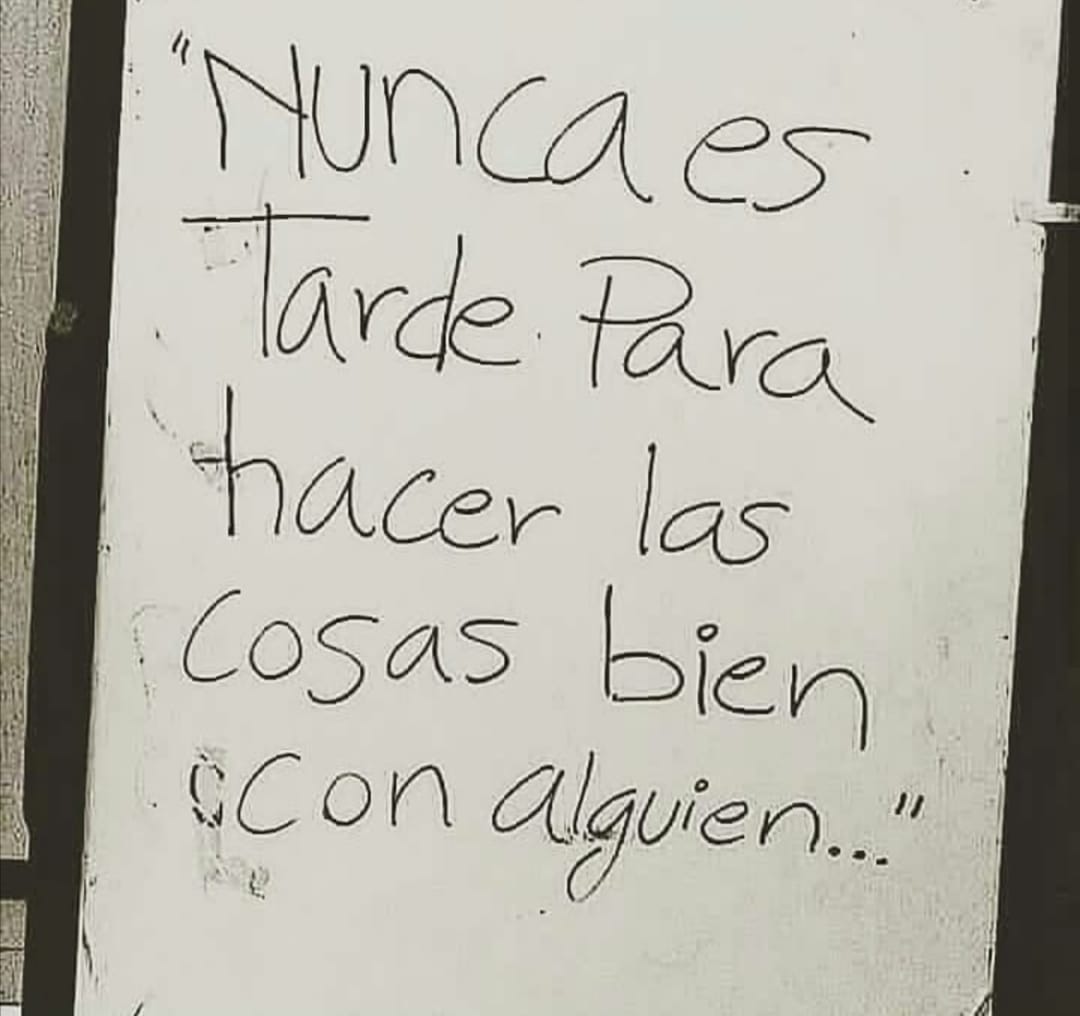 "Nunca es
Tarde Para
hacer las
cosas bien
con alguien..."